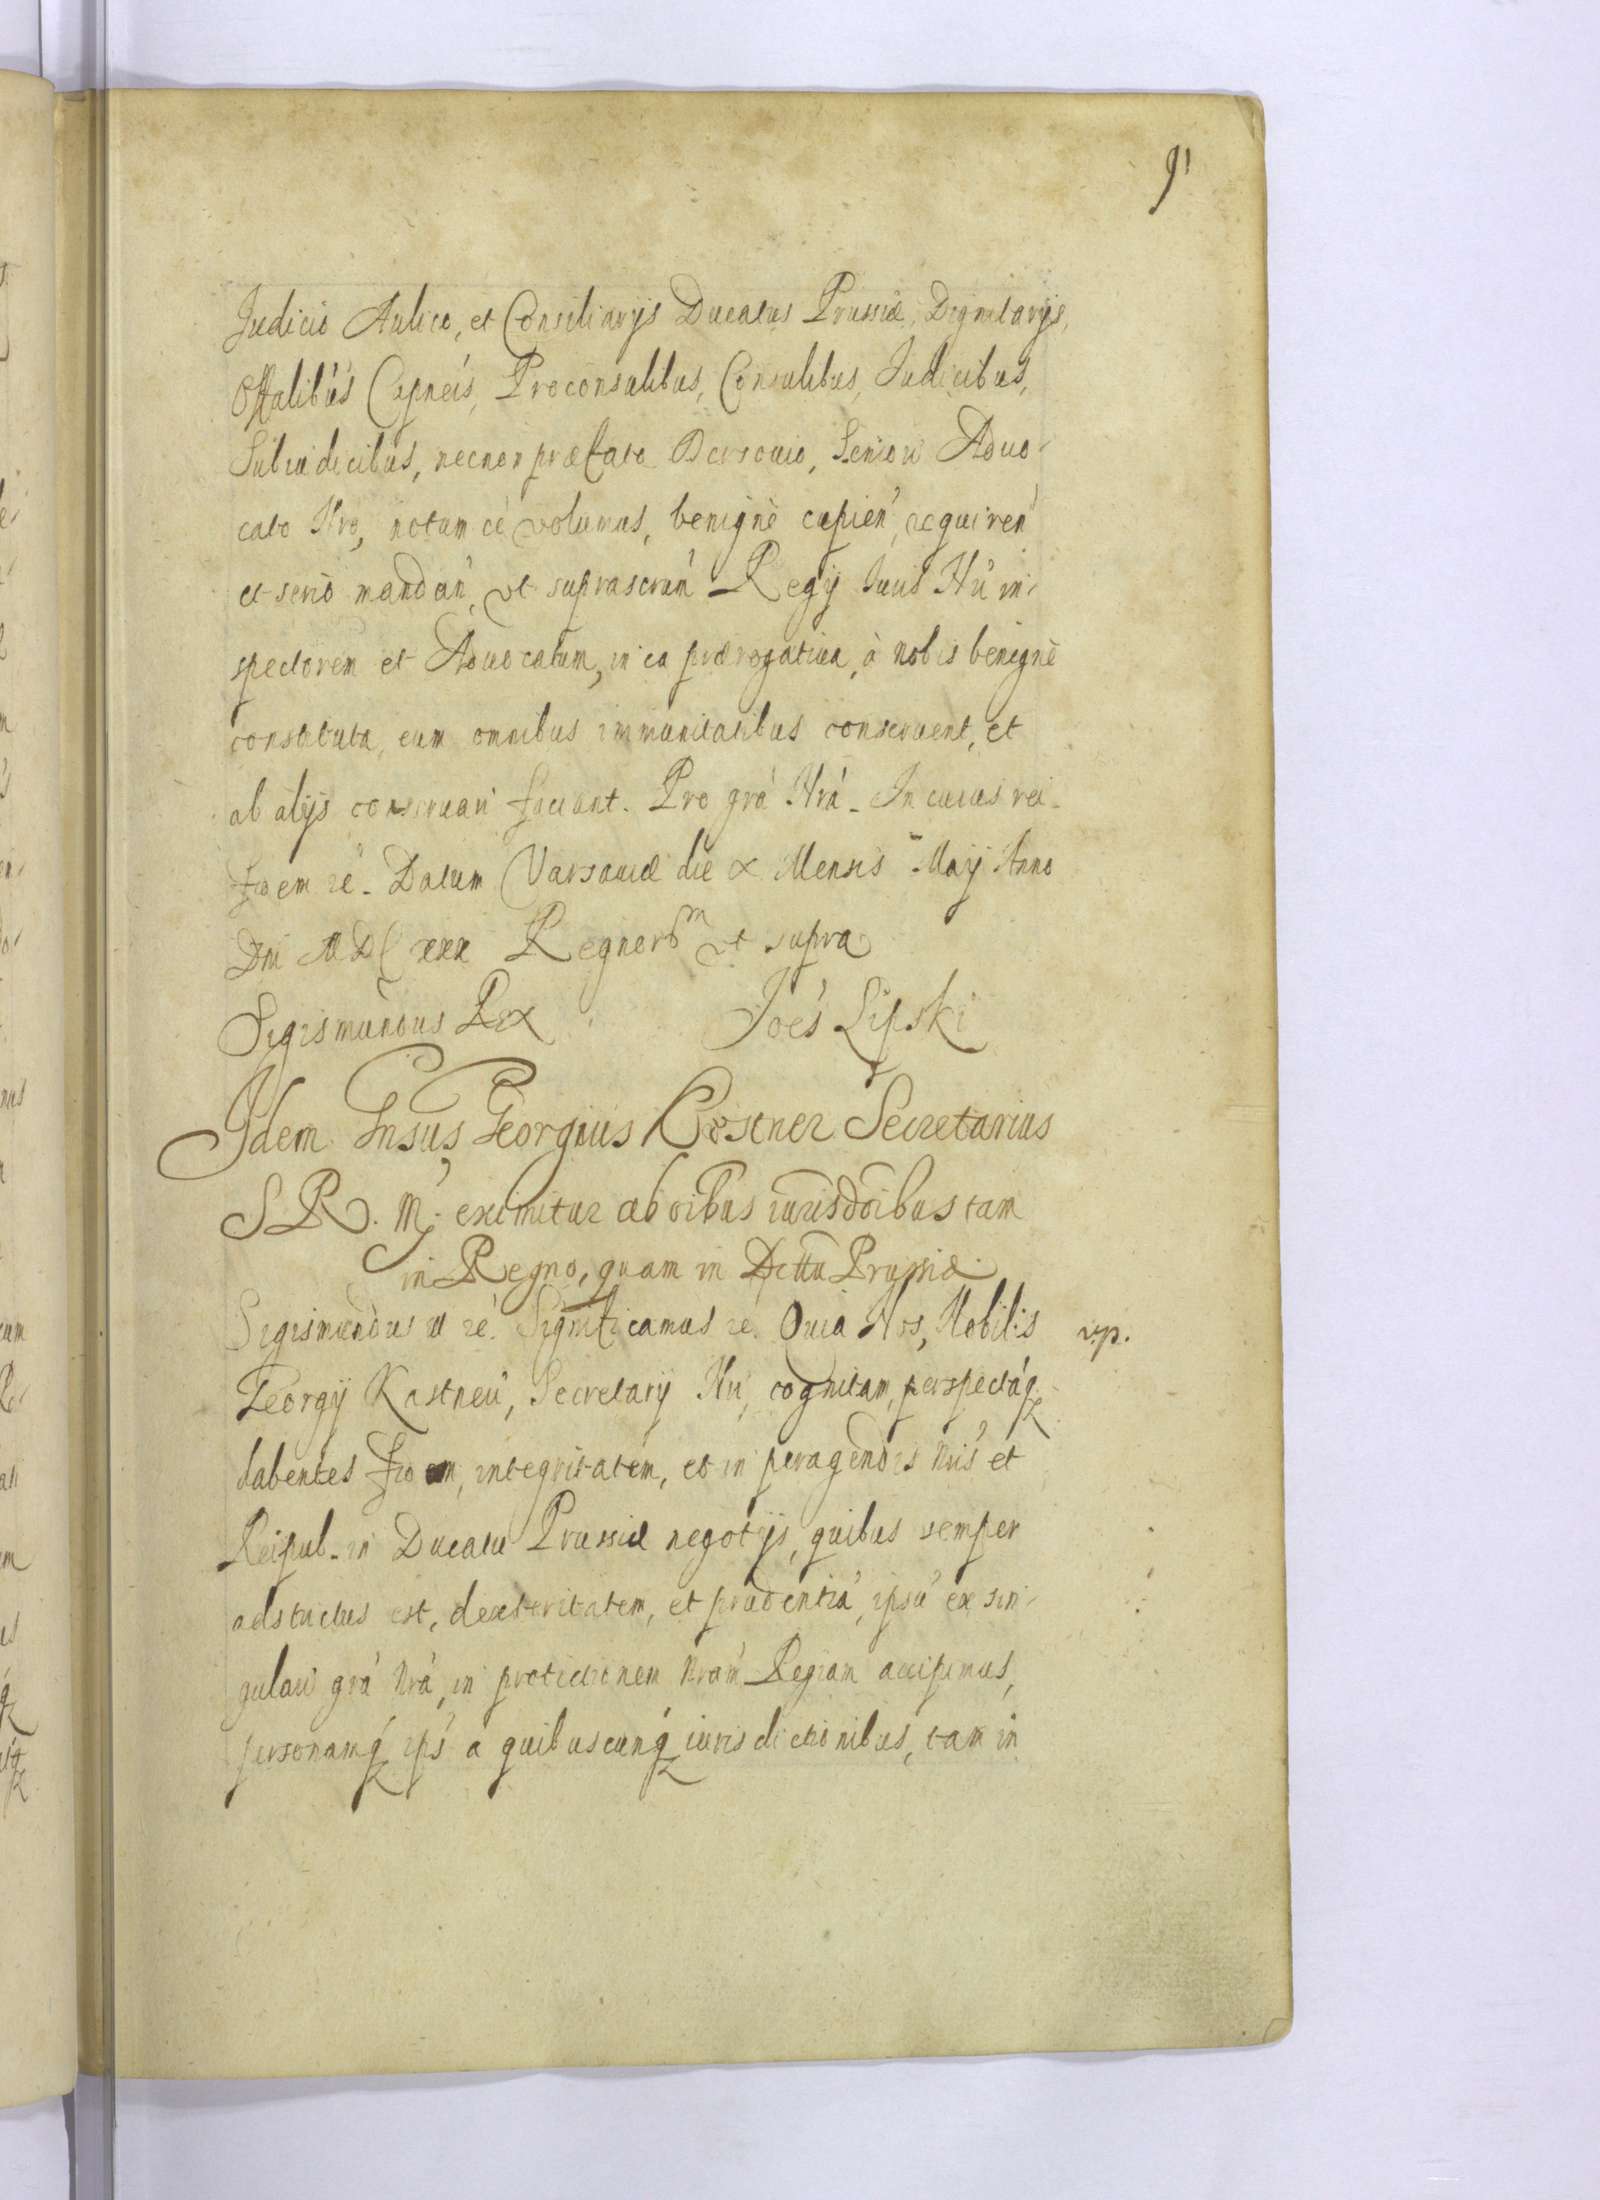 91
Judicio Aulico, et Consiliarijs Ducatus Prussiæ, Dignitarijs,
Offalibús Capneis, Proconsulibus, Consulibus, Judicibus,
Subiudicibus, necnon præfato Dersouio, Seniori Aduo-
cato Nro, notum cé volumus, benignè cupien', requiren'
et seriò mandan', vt suprascrün' Regij Iuris Nri in-
spectorem et Aduocatum, in ea prærogatiua, à nobis benignè
constituta, cum omnibus immunitatibus conseruent, et
ab alijs conseruari faciant. Pro grá Nrá. In cuius rei
fidem rć. Datum Varsauiæ die X Mensis Maij Anno
Dni MDCXXX Regnorm vt supra
Sigismundus Rex Joés Lipski
Idem Insus Georgius Kostner Secretarius
S. R. M. eximitur ab oibus iurisdoibus tam
in Regno, quam in Dcttu Prussiæ
Sigismundus III rć. Significamus rć. Quia Nos, Nobilis v.p.
Georgij Kastneri, Secretarij Nri, cognitam, perspectáq
habentes fidem, integritatem, et in peragendis Nris et
Reipub. in Ducatu Prussiæ negotijs, quibus semper
adstrictus est, dexteritatem, et prudentiá, ipsú ex sin-
gulari grá Nrá, in protectionem Nram Regiam accipimus,
personamq ips' a quibuscunq iurisdictionibus, tam in